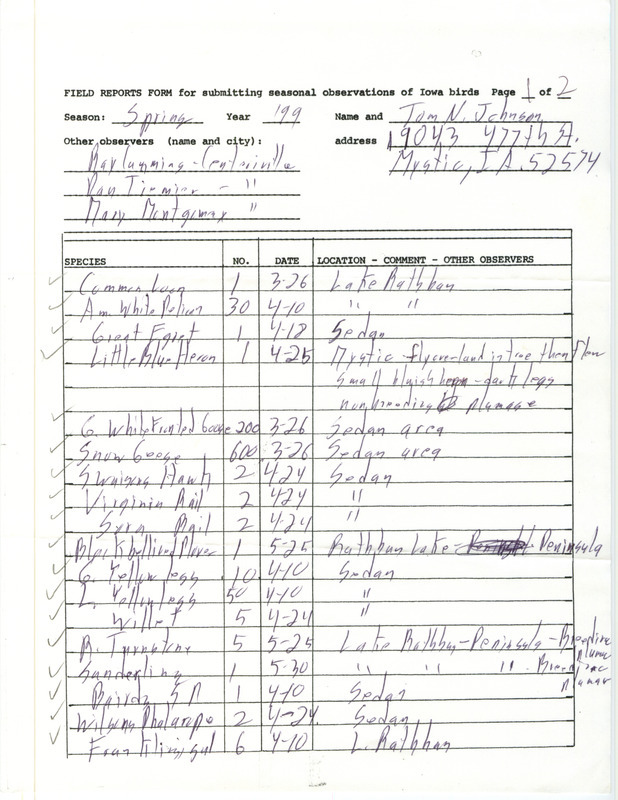 FIELD REPORTS FORM for submitting seasonal observations of Iowa birds Page 1 of 2
Season: Spring Year '99 Name and Tom N. Johnson
Other observers (name and city): address 19043 477th St.
Ray Cummins - Centerville Mystic, IA. 52574
Dan Tiemier - "
Mary Montgomery "
SPECIES NO. DATE LOCATION - COMMENT - OTHER OBSERVERS
Common Loon 1 3-26 Lake Rathbun
Am. White Pelican 30 4-10 " "
Great Egret 1 4-18 Sedan
Little Blue Heron 1 4-25 Mystic - flyover - land in tree then flew
small bluish heron - dark legs
nonbreeding plumage
G. White Fronted Goose 200 3-26 Sedan area
Snow Goose 600 3-26 Sedan area
Swainsons Hawk 2 4-24 Sedan
Virginia Rail 2 4-24 "
Sora Rail 2 4-24 "
Black bellied Plover 1 5-25 Rathbun Lake - Peninsula
G. Yellow legs 10 4-10 Sedan
L. Yellow legs 50 4-10 "
Willet 5 4-24 "
R. Turnstone 5 5-25 Lake Rathbun - Peninsula - Breeding Plumage
Sanderling 1 5-30 " " " Breeding Plumage
Bairds SP 1 4-10 Sedan
Wilsons Phalarope 2 4-24 Sedan
Franklins gul 6 4-10 L. Rathbun